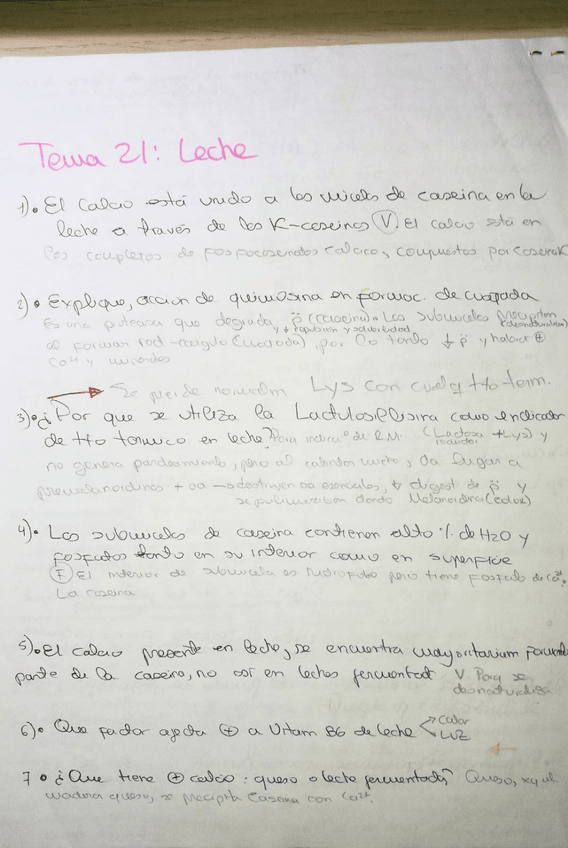 Tema 21: Leche
1). El calcio está unido a las micelas de caseina en la
leche a través de las K-caseinas (V). El calcio está en
los complejos de fosfocaseinatos calcico, compuestos por caseina K
2) • Explique, accion de quimosina en formac. de cuajada
Es una proteasa que degrada p̄ (caseina). Las submicelas precipitan
↓ repulsion y solubilidad (desnaturalizan)
al formar red-coagulo (cuajada), por lo tanto ↓ p̄ y habrá ⊕
Ca²⁺ y unidades
Se pierde normalm Lys con cualq tto term.
3)• ¿Por que se utiliza la Lactulosillisina como indicador
de tto termico en leche? Para indicar de R.M. (Lactosa + Lys) y
no genera pardeamiento, pero al calentar mucho, da lugar a
premelanoidinas + aa → destruyen aa esenciales, ↓ digest de p̄ y
se polimerizan dando Melanoidinas (color)
4)• Las submicelas de caseina contienen alto % de H2O y
fosfatos tanto en su interior como en superficie
(F) El interior de submicela es hidrofobo pero tiene fosfato de Ca²⁺,
La caseina
5)• El calcio presente en leche, se encuentra mayoritariam formando
parte de la caseina, no asi en leches fermentad V Porq se
desnaturaliza
6)• Que factor afecta ⊕ a Vitam B6 de leche → Calor
→ LUZ
7 • ¿Que tiene ⊕ calcio: queso o leche fermentada? Queso, xq al
madurar queso, se precipita Caseina con Ca²⁺.